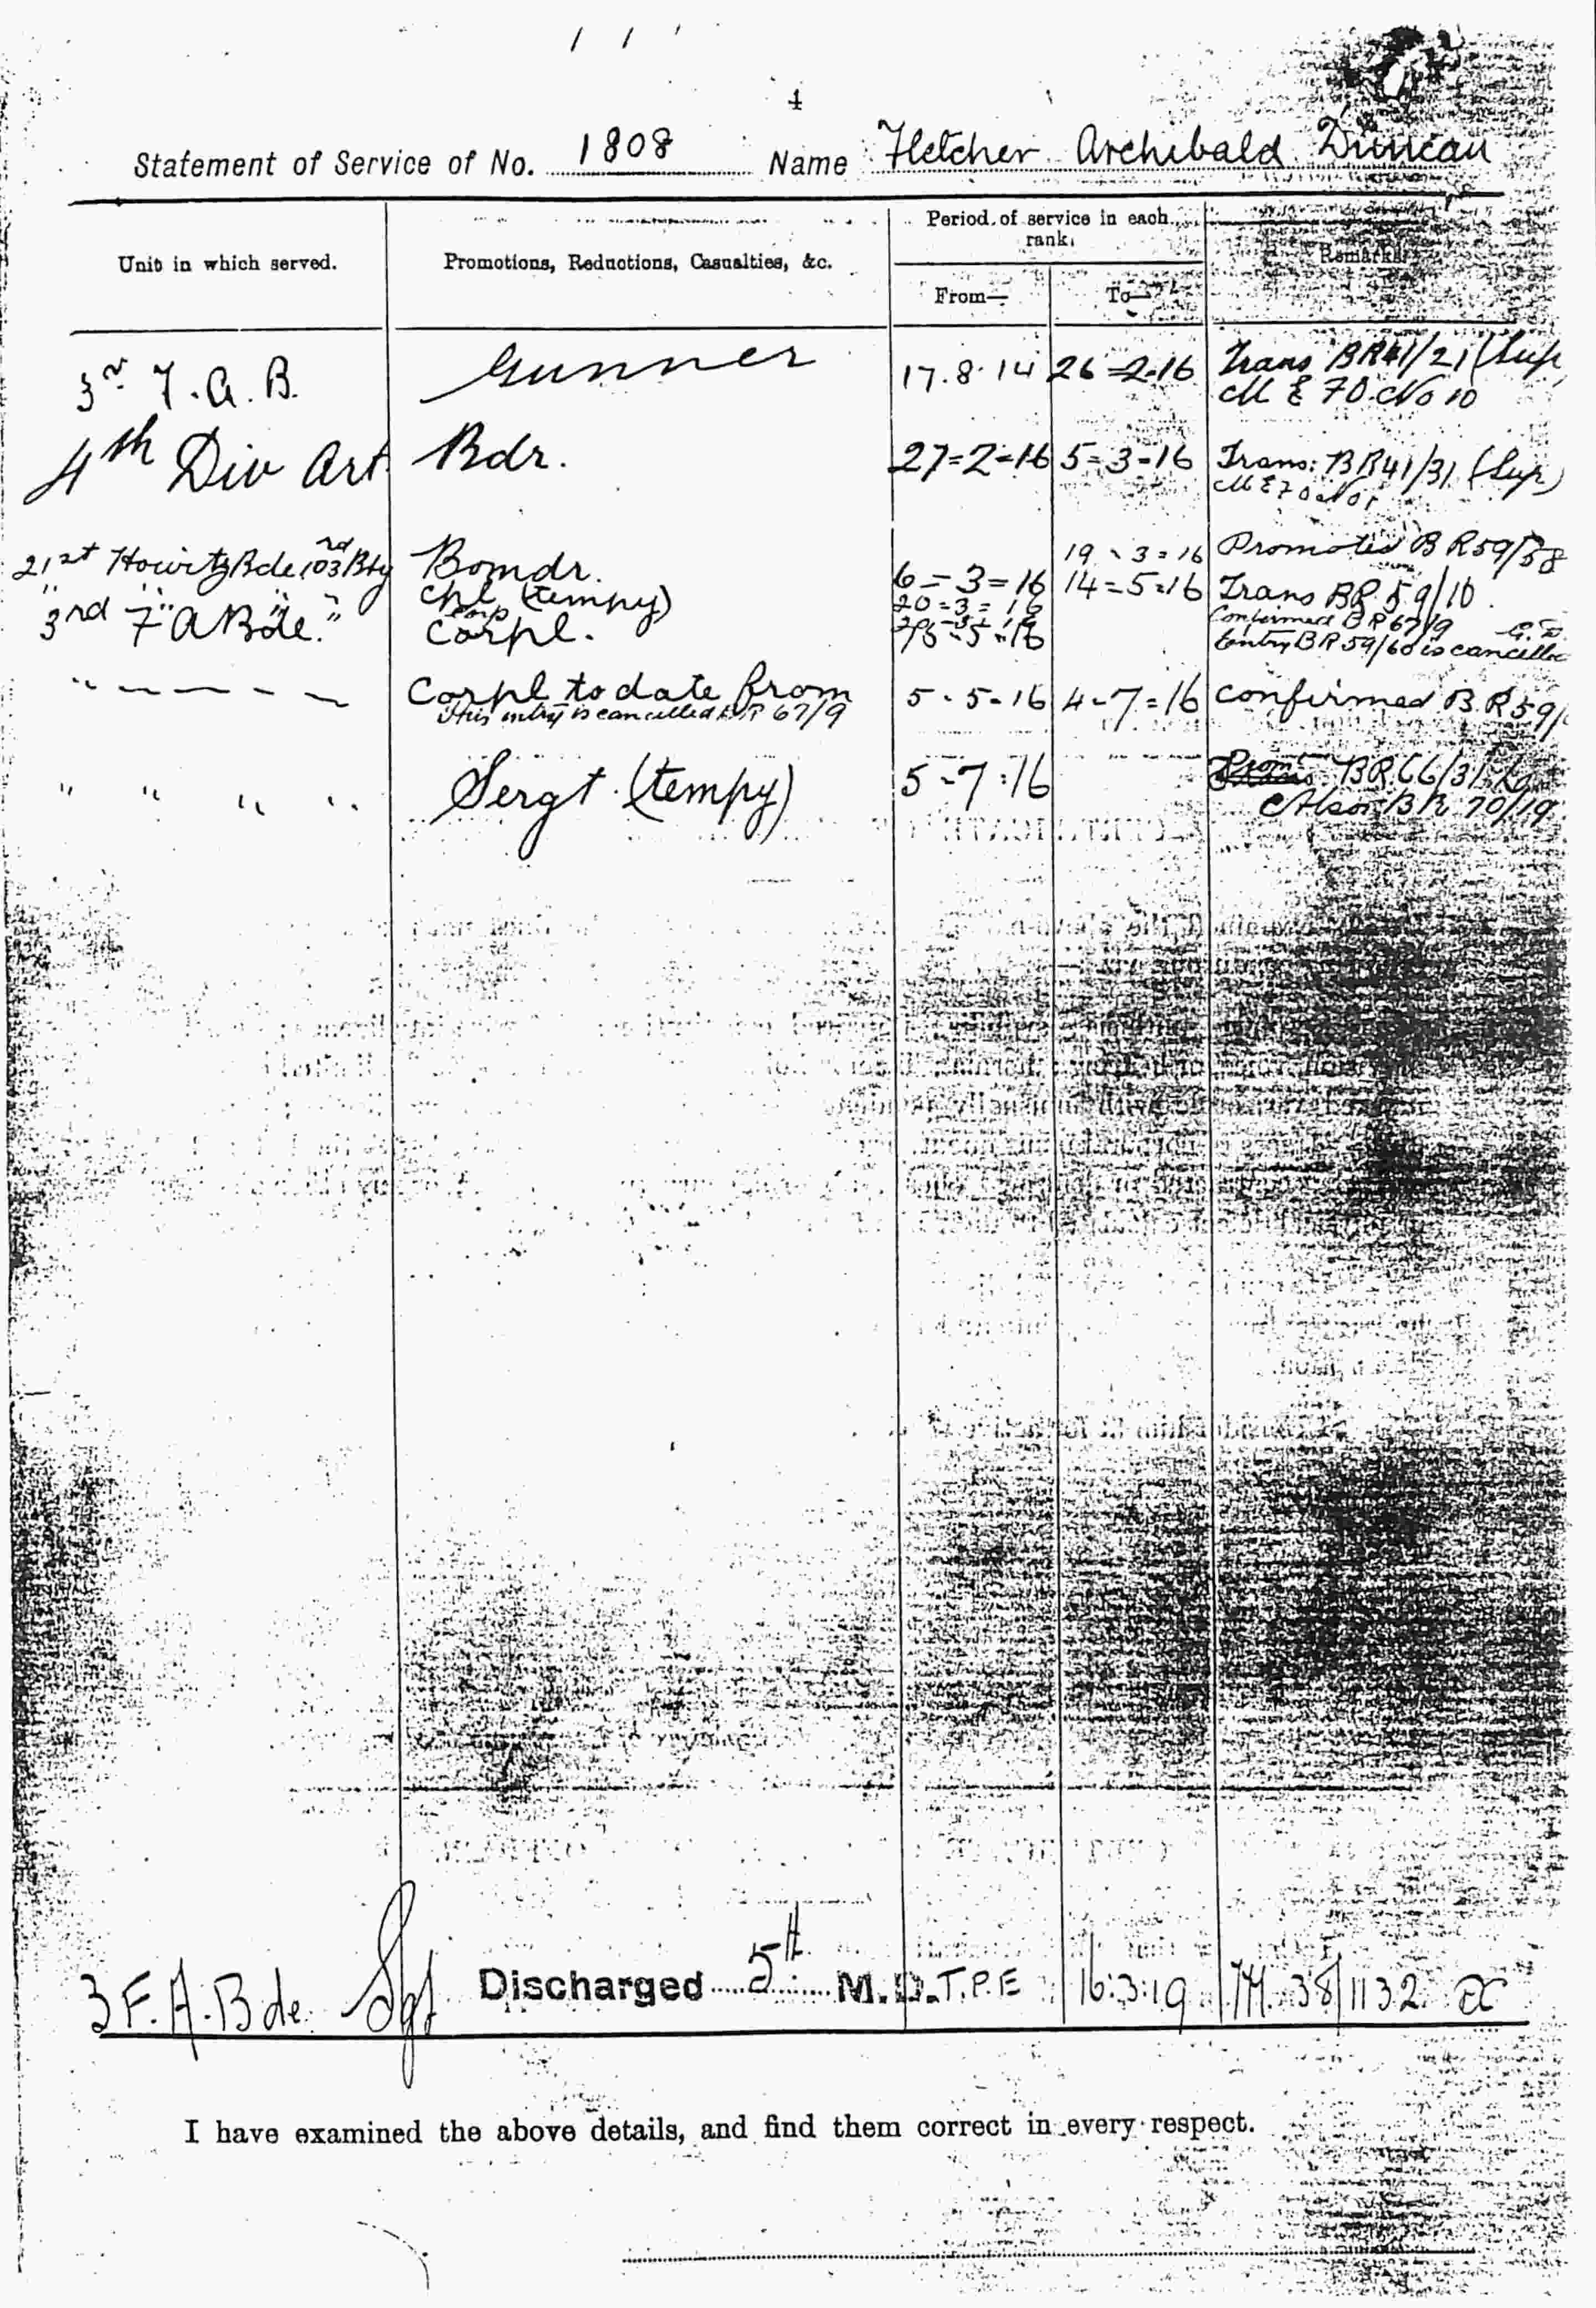 4
Statement of Service of No. 1808 Name Fletcher Archibald Duncan
Unit in which served.
Promotions, Reductions, Casualties, &c.
Period of service in each rank.
From—
To—
Remarks.
3rd F.A.B. Gunner 17.8.14 26=2.16 Trans BR41/21 (Sup
M E 70. No 10
4th Div Art Bdr. 27=2=16 5=3=16 Trans: BR41/31 (Sup)
M E 70 No 1
21st Howitz Bde 103rd Bty Bomdr. 6=3=16 19.3=16 Promoted BR59/58
" " " " Cpl (tempy) 20=3=16 14=5=16 Trans BR.59/10.
3rd F A Bde. " Corpl. 5=16 Confirmed BR67/9
Entry BR59/60 is cancelled
" — — — — Corpl to date from 5.5.16 4-7=16 Confirmed B.R 59/
This entry is cancelled BR 67/9
" " " " Sergt (tempy) 5-7:16 Prom BR66/31
Also BR 70/19
3 F.A.Bde. Sgt Discharged 5th M.D. T.P.E 16:3:19 38/1132
I have examined the above details, and find them correct in every respect.